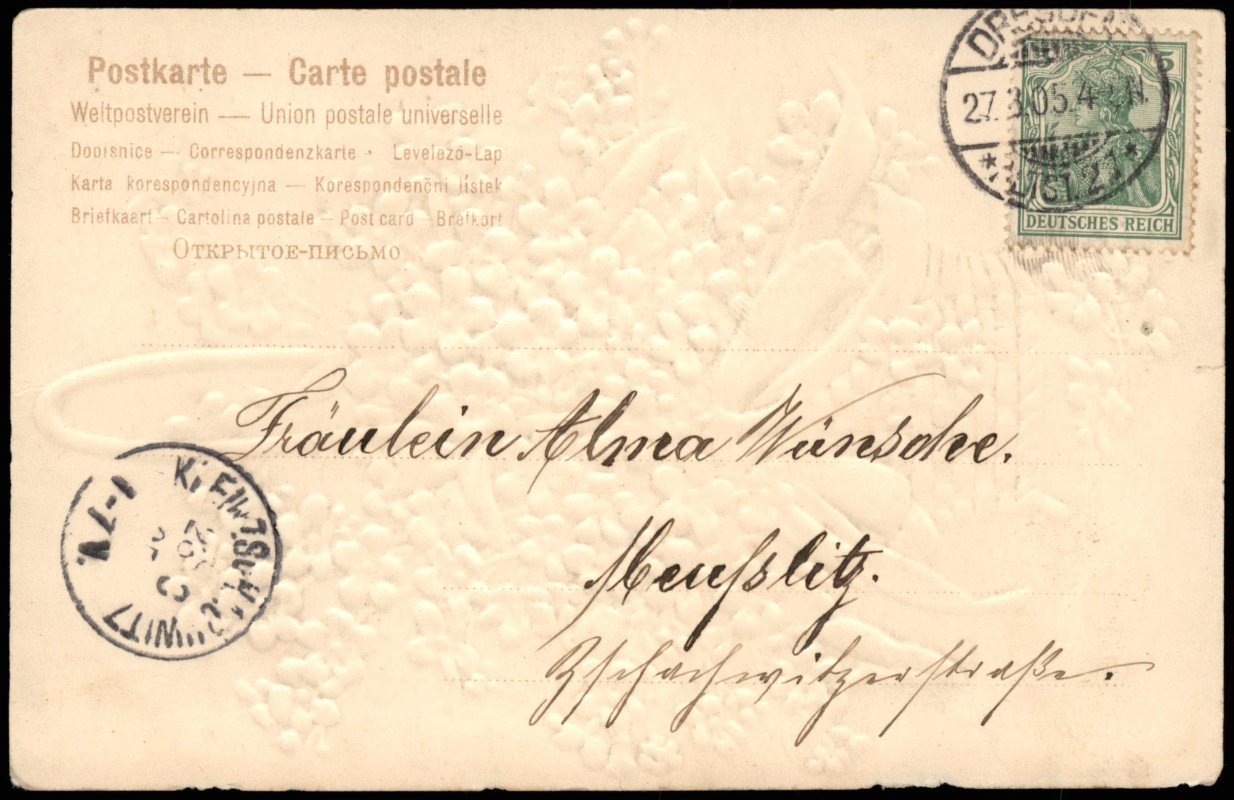 Postkarte — Carte postale
Weltpostverein — Union postale universelle
Dopisnice — Correspondenzkarte - Levelező-Lap
Karta korespondencyjna — Korespondenční lístek
Briefkaart — Cartolina postale — Post card - Brefkort
Открытое-письмо
DRESDEN
27.3.05.4 N.
* 21 *
5
DEUTSCHES REICH
Fräulein Alma Wünsche.
Meußlitz.
Zschachwitzerstraße.
1-7 N.